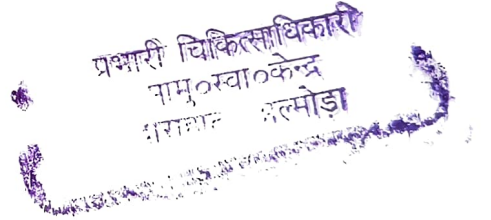 प्रभारी चिकित्साधिकारी
सामु०स्वा०केन्द्र
अल्मोड़ा